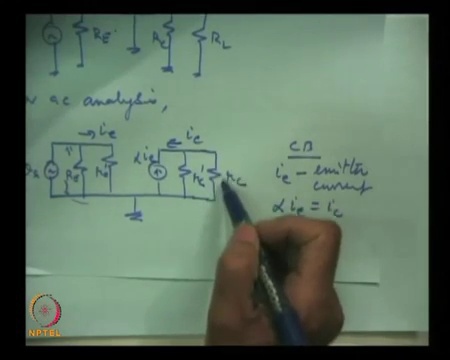 RE R_c R_L
ac analysis,
i_e i_c
αi_e
R_E r_e' r_c' r_c
CB
i_e - emitter
current
α i_e = i_c
NPTEL